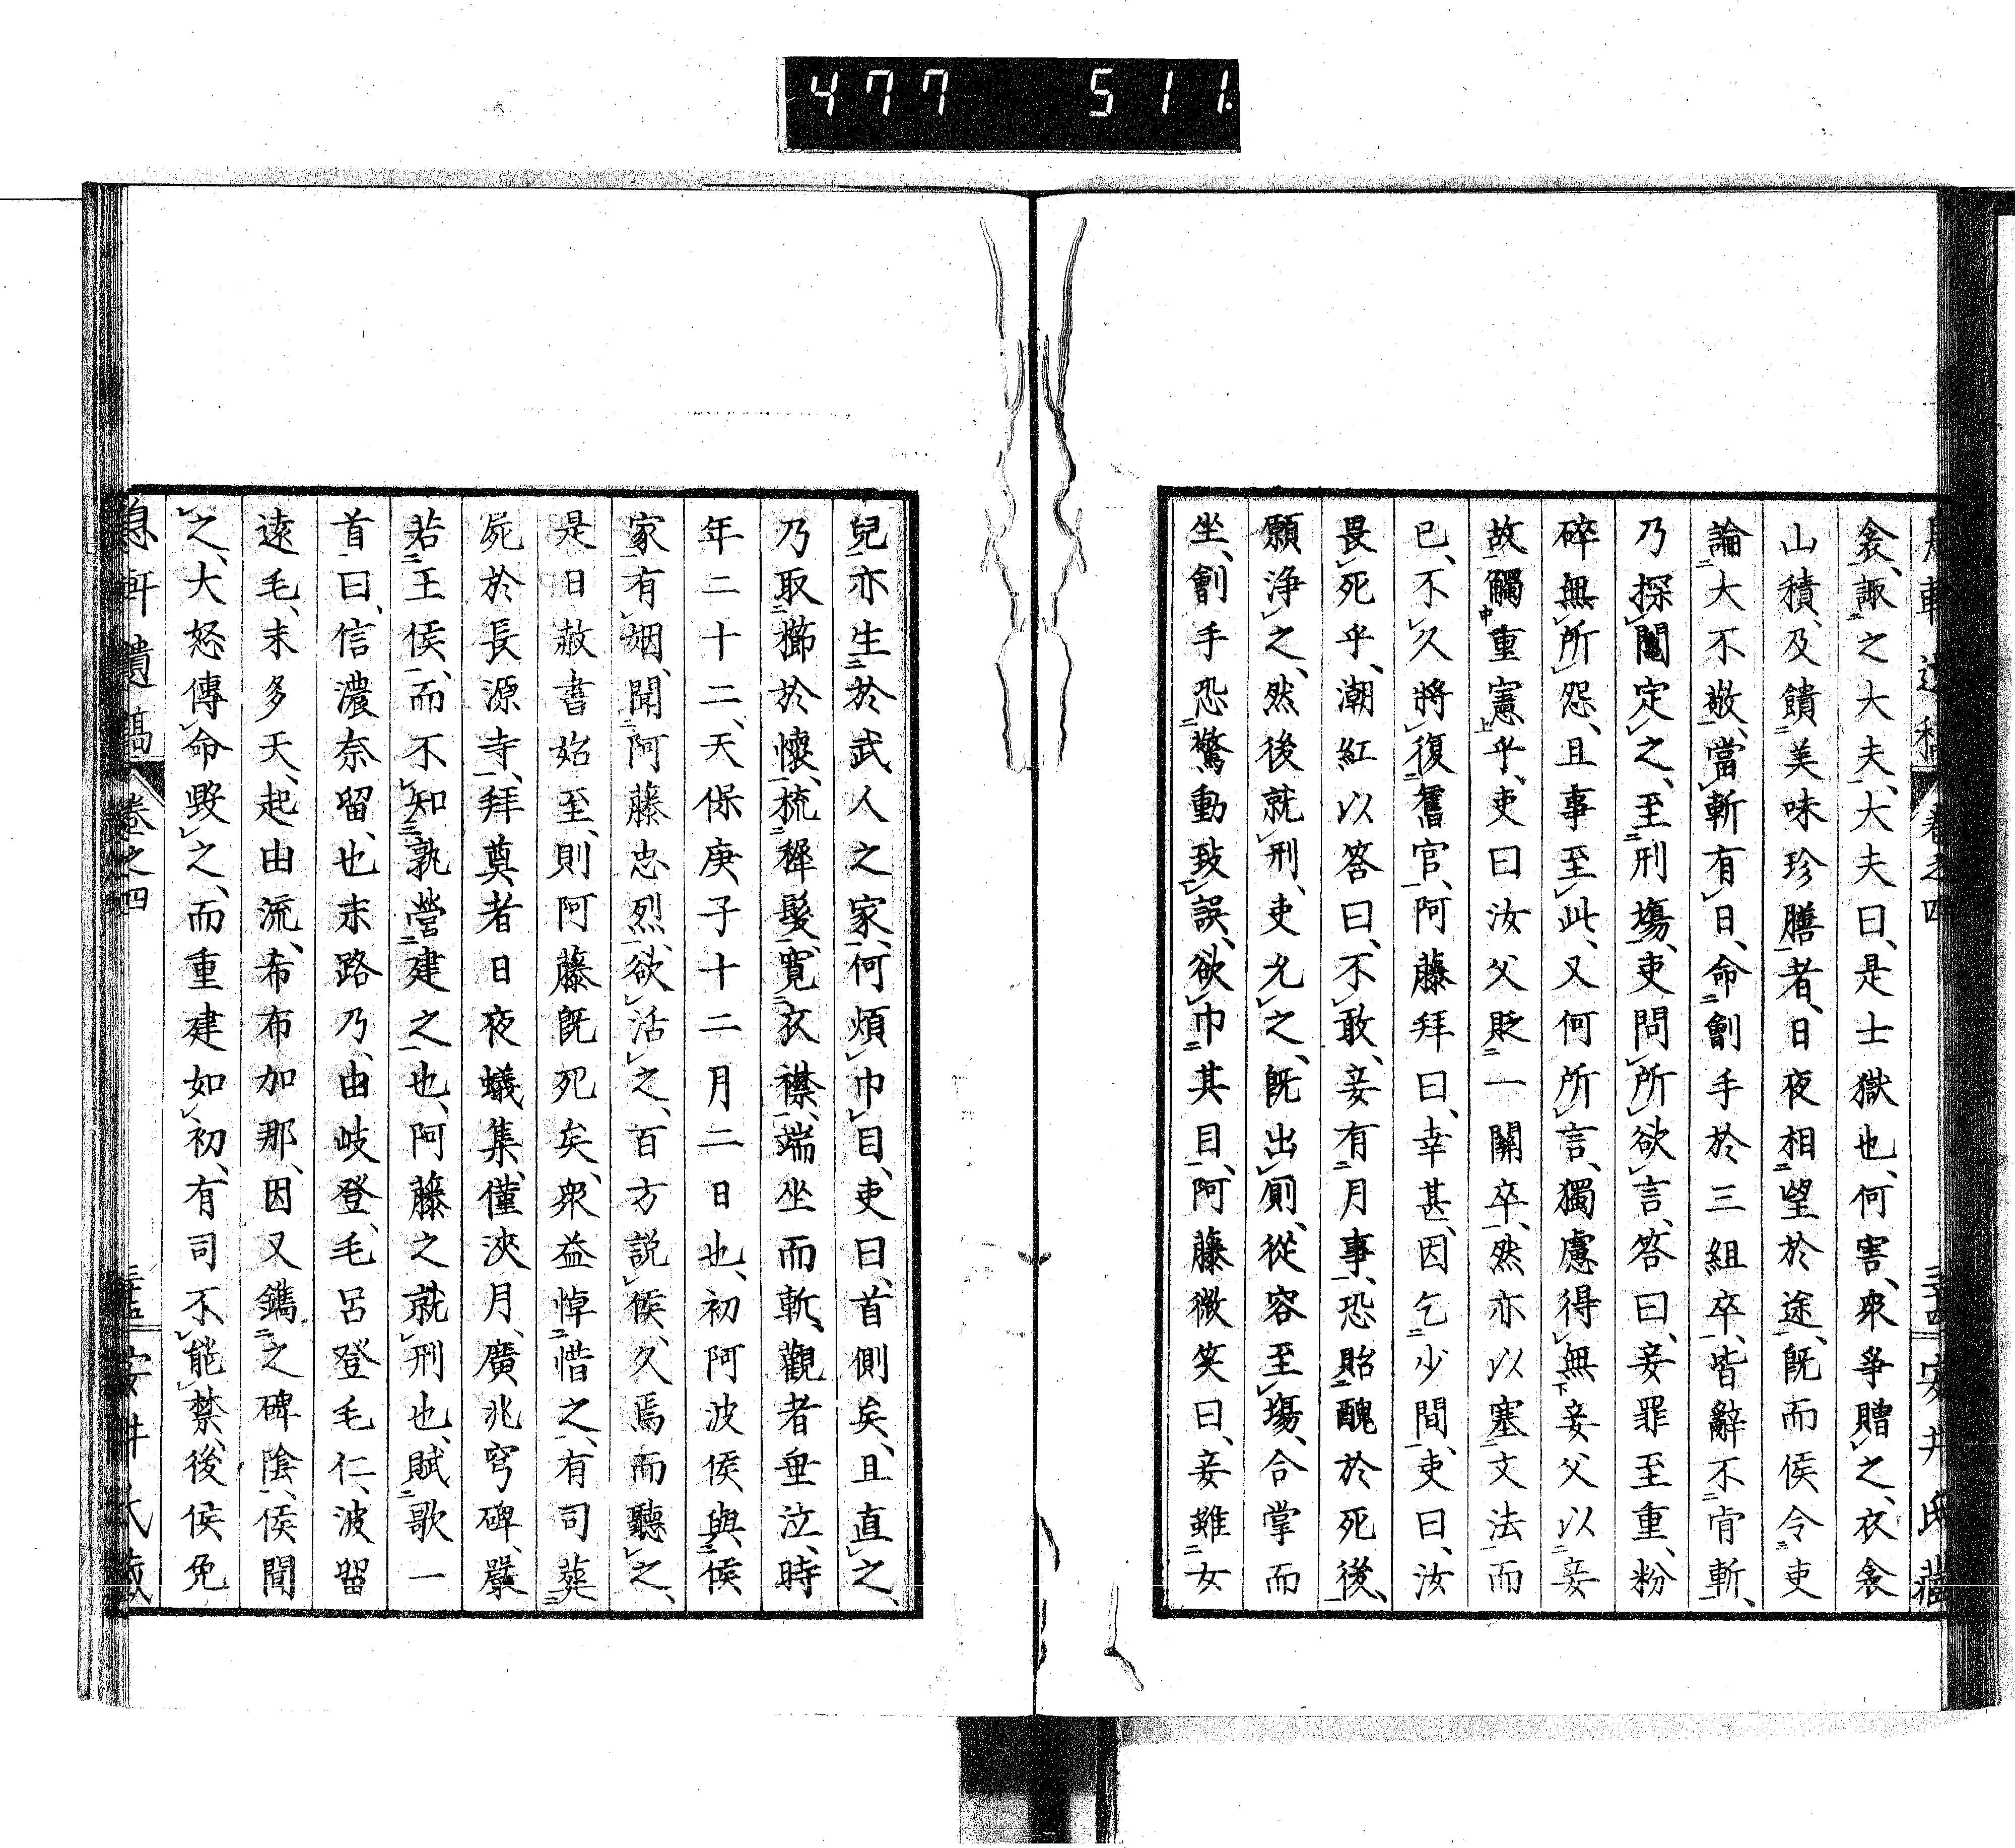 477 511.
息軒遺稿 卷之四 三十四 安井氏藏
衾、諏之大夫、大夫曰、是士獄也、何害、衆爭贈之、衣衾
山積、及饋美味珍膳者、日夜相望於途、既而侯令吏
論大不敬、當斬有日、命劊手於三組卒、皆辭不肯斬、
乃探鬮定之、至刑場、吏問所欲言、答曰、妾罪至重、粉
碎無所怨、且事至此、又何所言、獨慮得無妾父以妾
故觸重憲乎、吏曰汝父貶一關卒、然亦以塞文法而
已、不久將復舊官、阿藤拜曰、幸甚、因乞少間、吏曰、汝
畏死乎、潮紅以答曰、不敢、妾有月事、恐貽醜於死後、
願浄之、然後就刑、吏允之、既出廁、從容至場、合掌而
坐、劊手恐驚動致誤、欲巾其目、阿藤微笑曰、妾雖女
兒、亦生於武人之家、何煩巾目、吏曰、首側矣、且直之、
乃取櫛於懷、梳稺髮、寬衣襟、端坐而斬、觀者垂泣、時
年二十二、天保庚子十二月二日也、初阿波侯、與侯
家有姻、聞阿藤忠烈、欲活之、百方說侯、久焉而聽之、
是日赦書始至、則阿藤既死矣、衆益悼惜之、有司葬
屍於長源寺、拜奠者日夜蟻集、僅浹月、廣兆穹碑、嚴
若王侯、而不知孰營建之也、阿藤之就刑也、賦歌一
首曰、信濃奈留、也末路乃、由岐登、毛呂登毛仁、波留
遠毛、末多天、起由流、布布加那、因又鐫之碑陰、侯聞
之、大怒傳命毀之、而重建如初、有司不能禁、後侯免
息軒遺稿 卷之四 安井氏藏